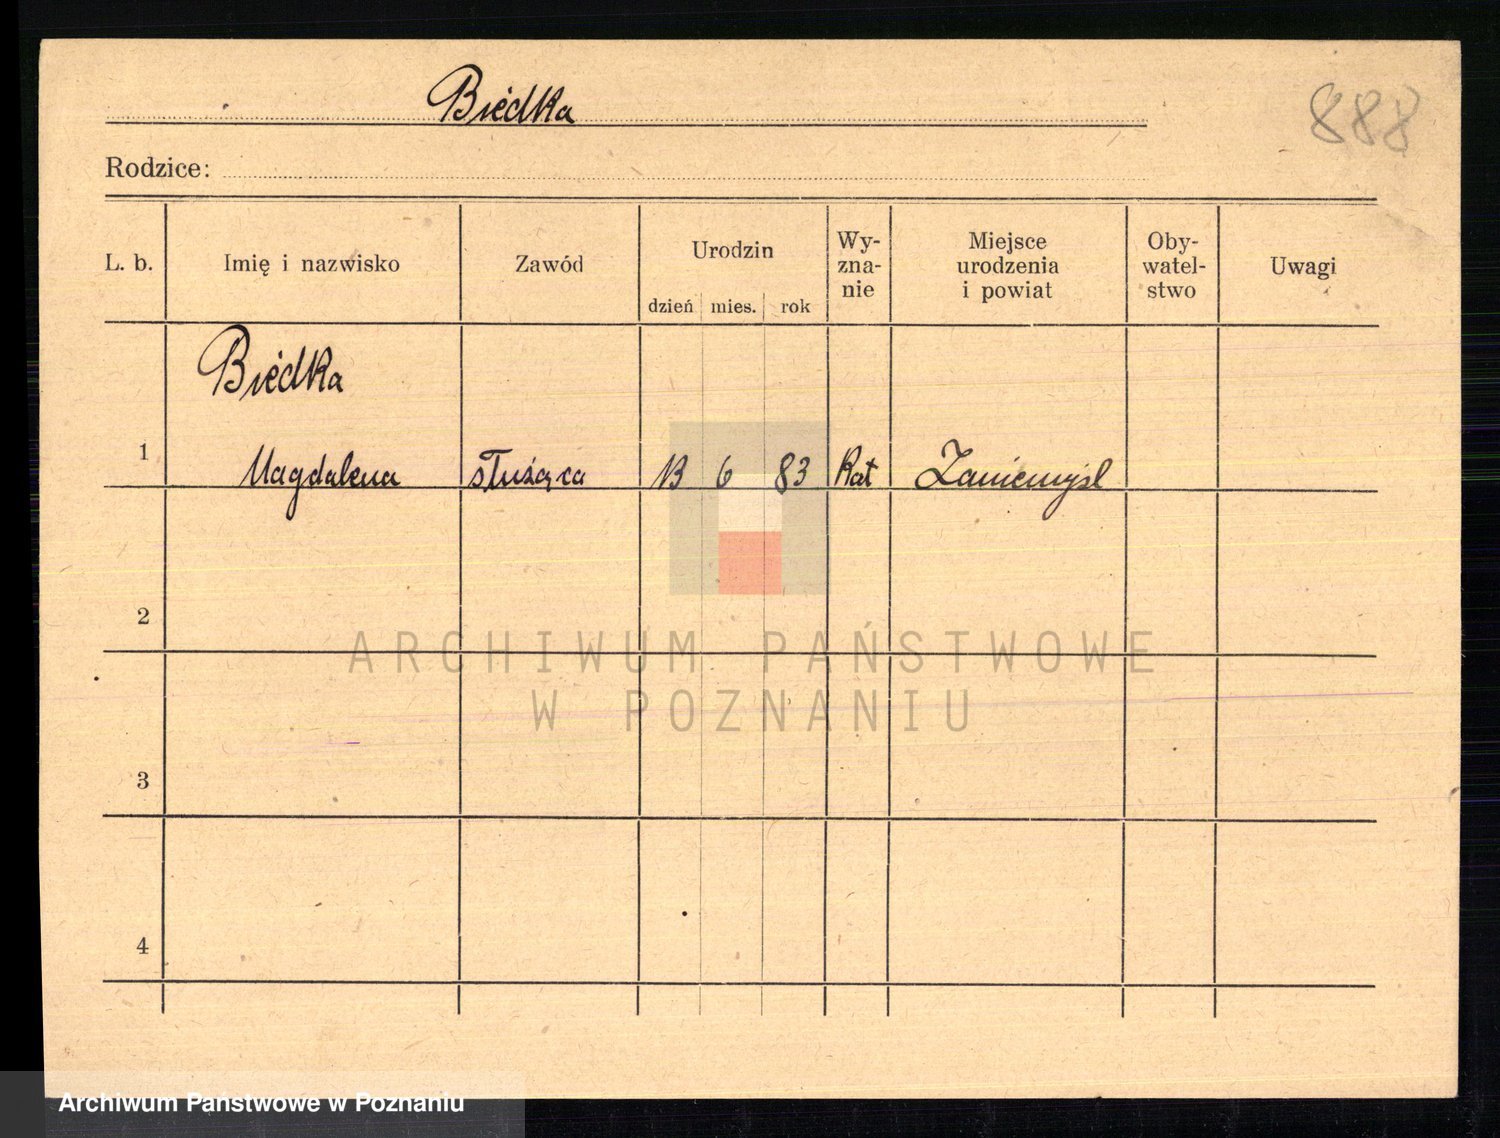 Biedka
888
Rodzice:
L. b. Imię i nazwisko Zawód Urodzin dzień mies. rok Wy-zna-nie Miejsce urodzenia i powiat Oby-watel-stwo Uwagi
Biedka
1 Magdalena służąca 13 6 83 Kat Zaniemyśl
2
ARCHIWUM PAŃSTWOWE
W POZNANIU
3
4
Archiwum Państwowe w Poznaniu